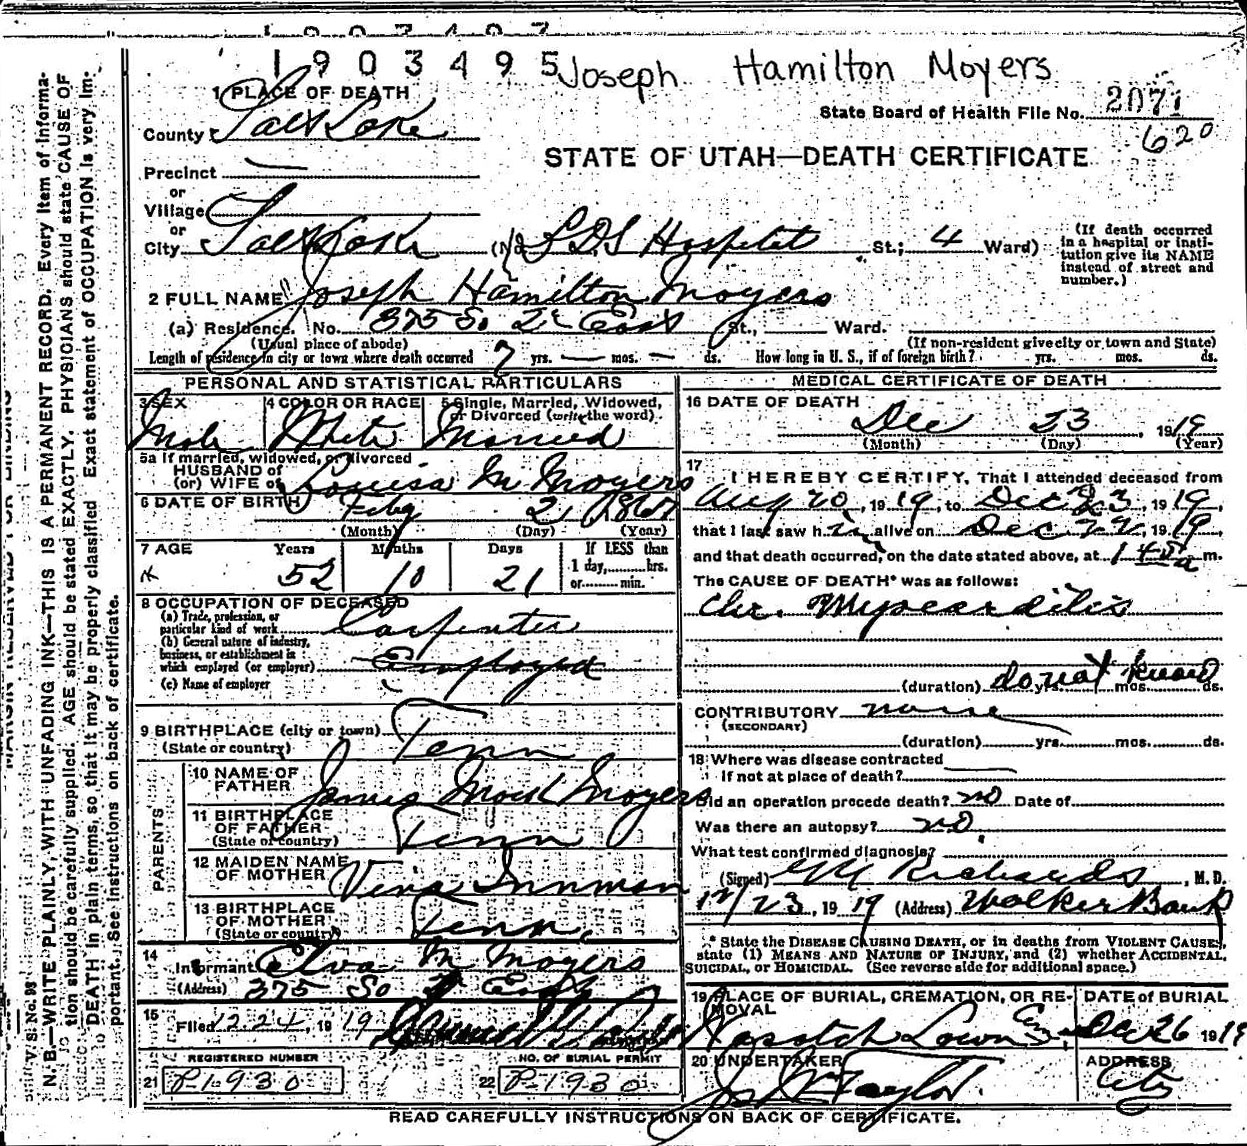 1903495 Joseph Hamilton Moyers
1 PLACE OF DEATH
State Board of Health File No. 2071
620
County Salt Lake
STATE OF UTAH—DEATH CERTIFICATE
Precinct
or
Village
or
City Salt Lake (No. L.D.S. Hospital St.; 4 Ward)
(If death occurred in a hospital or institution give its NAME instead of street and number.)
2 FULL NAME Joseph Hamilton Moyers
(a) Residence. No. 375 So 2 East St., Ward.
(Usual place of abode) (If non-resident give city or town and State)
Length of residence in city or town where death occurred 7 yrs. — mos. — ds. How long in U. S., if of foreign birth? yrs. mos. ds.
PERSONAL AND STATISTICAL PARTICULARS
3 SEX Male
4 COLOR OR RACE White
5 Single, Married, Widowed, or Divorced (write the word). Married
5a If married, widowed, or divorced
HUSBAND of
(or) WIFE of Louisa M Moyers
6 DATE OF BIRTH Feby 2 1867
(Month) (Day) (Year)
7 AGE Years Months Days If LESS than
1 day, hrs.
52 10 21 or min.
8 OCCUPATION OF DECEASED
(a) Trade, profession, or
particular kind of work Carpenter
(b) General nature of industry,
business, or establishment in
which employed (or employer) Employed
(c) Name of employer
9 BIRTHPLACE (city or town) Tenn
(State or country)
PARENTS
10 NAME OF
FATHER James Mock Moyers
11 BIRTHPLACE
OF FATHER Tenn
(State or country)
12 MAIDEN NAME
OF MOTHER Vina Innman
13 BIRTHPLACE
OF MOTHER Tenn.
(State or country)
14 Informant Elva M Moyers
(Address) 375 So 2 East
15 Filed 12 24, 1919
REGISTERED NUMBER NO. OF BURIAL PERMIT
21 P-1930 22 P-1930
MEDICAL CERTIFICATE OF DEATH
16 DATE OF DEATH
Dec 23, 1919
(Month) (Day) (Year)
17 I HEREBY CERTIFY, That I attended deceased from
Aug 20, 1919, to Dec 23, 1919,
that I last saw him alive on Dec 22, 1919
and that death occurred, on the date stated above, at 145a m.
The CAUSE OF DEATH* was as follows:
Chr. Myocarditis
(duration) do not know yrs. mos. ds.
CONTRIBUTORY none
(SECONDARY)
(duration) yrs. mos. ds.
18 Where was disease contracted
if not at place of death?
Did an operation precede death? no Date of
Was there an autopsy? no.
What test confirmed diagnosis?
(Signed) G M Richards, M. D.
12/23, 1919 (Address) Walker Bank
* State the DISEASE CAUSING DEATH, or in deaths from VIOLENT CAUSES,
state (1) MEANS AND NATURE OF INJURY, and (2) whether ACCIDENTAL,
SUICIDAL, or HOMICIDAL. (See reverse side for additional space.)
19 PLACE OF BURIAL, CREMATION, OR RE-
MOVAL DATE OF BURIAL
Wasatch Lawn Cem. Dec 26 1919
20 UNDERTAKER ADDRESS
Taylor. City
READ CAREFULLY INSTRUCTIONS ON BACK OF CERTIFICATE.
V. S. No. 98
MARGIN RESERVED FOR BINDING
N. B.—WRITE PLAINLY, WITH UNFADING INK—THIS IS A PERMANENT RECORD. Every item of informa-
tion should be carefully supplied. AGE should be stated EXACTLY. PHYSICIANS should state CAUSE OF
DEATH in plain terms, so that it may be properly classified. Exact statement of OCCUPATION is very im-
portant. See instructions on back of certificate.